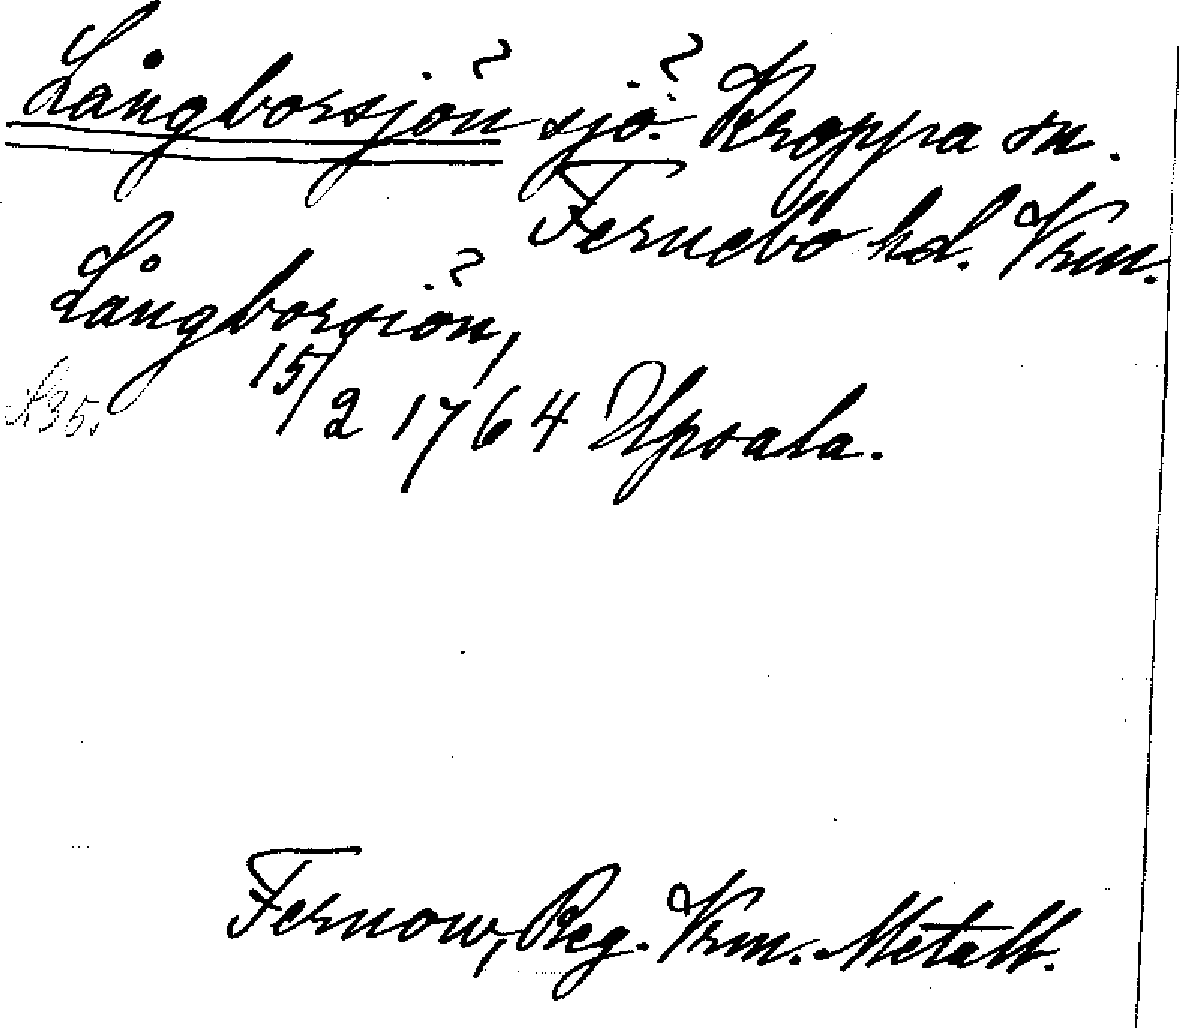 Långborsjön sjö. Kroppa sn.
Fernebo hd. Vrm.
Långborsiön,
15/2 1764 Upsala.
Fernow, Reg. Vrm. Metall.